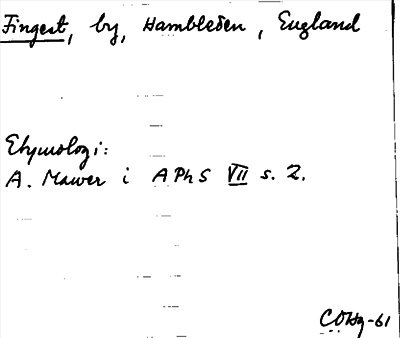 Fingest, by, Hambleden, England
Etymologi:
A. Mawer i APhS VII s. 2.